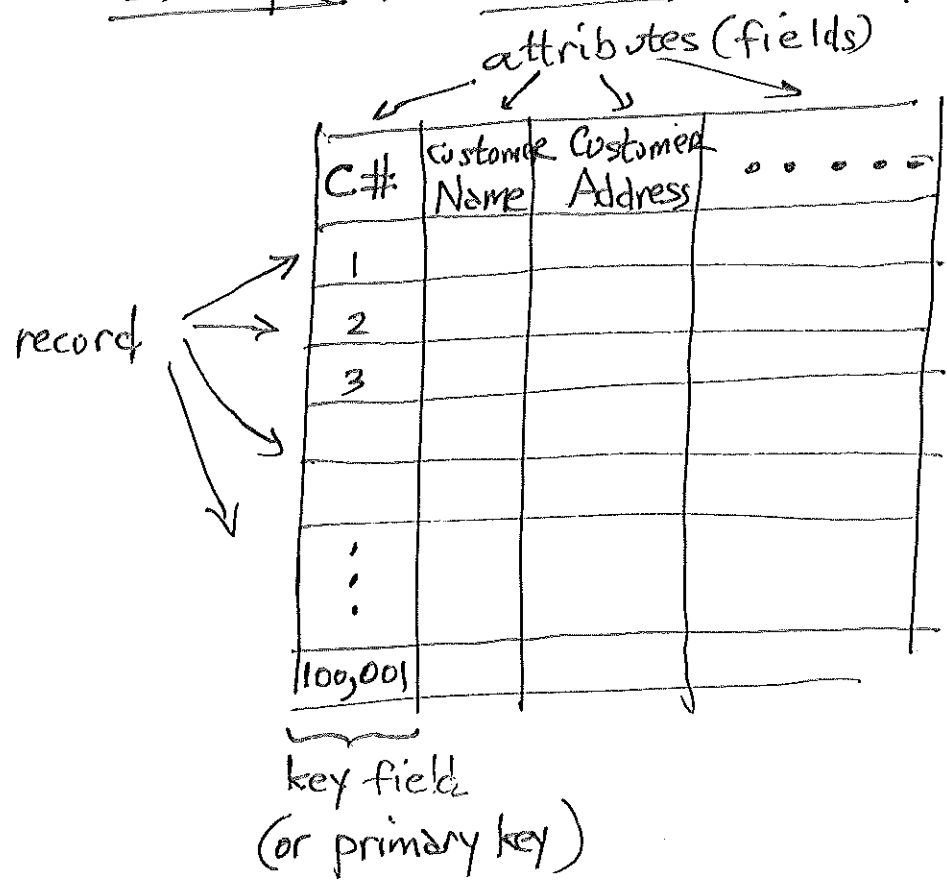 attributes (fields)
C# Customer Name Customer Address . . . . .
1
record
2
3
100,001
key field
(or primary key)